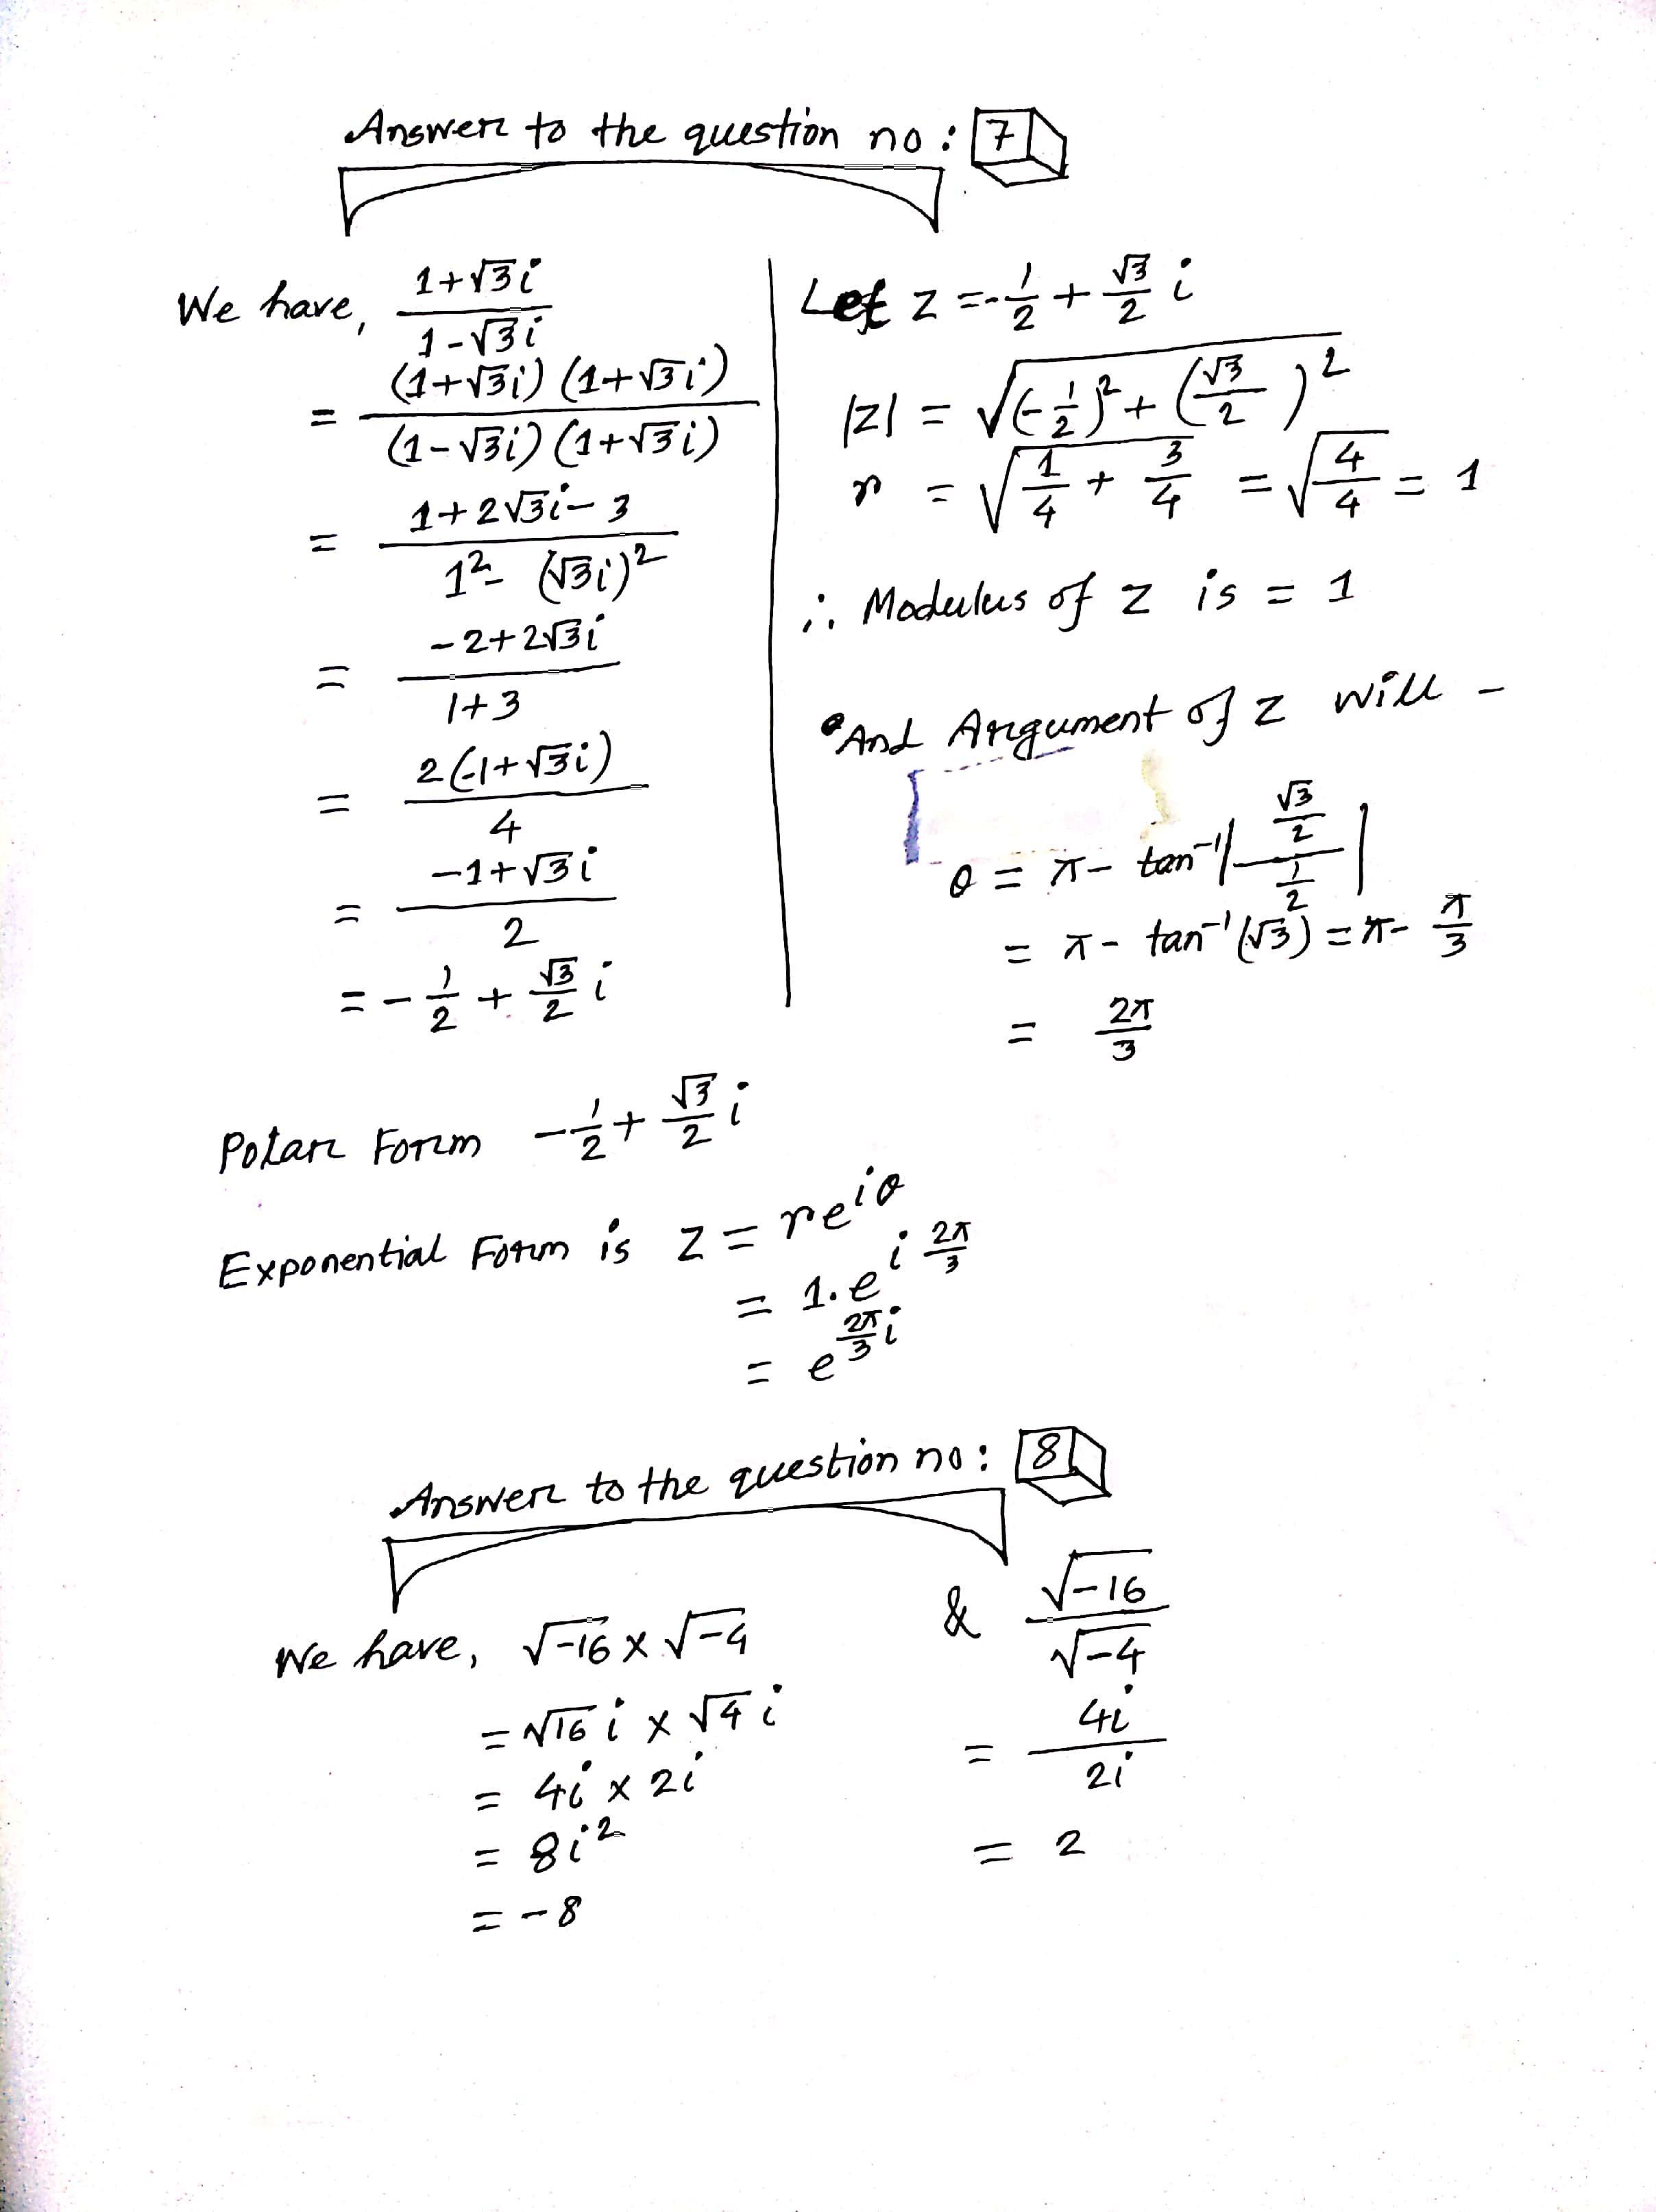 Answer to the question no: 7
We have, (1+√3i)/(1-√3i)
= ((1+√3i)(1+√3i))/((1-√3i)(1+√3i))
= (1+2√3i-3)/(1²-(√3i)²)
= (-2+2√3i)/(1+3)
= 2(-1+√3i)/4
= (-1+√3i)/2
= -1/2 + √3/2 i
Let z = -1/2 + √3/2 i
|z| = √((-1/2)² + (√3/2)²)
r = √(1/4 + 3/4) = √(4/4) = 1
∴ Modulus of z is = 1
And Argument of z will -
θ = π - tan⁻¹|(√3/2)/(1/2)|
= π - tan⁻¹(√3) = π - π/3
= 2π/3
Polar Form -1/2 + √3/2 i
Exponential Form is z = re^(iθ)
= 1.e^(i 2π/3)
= e^(2π/3 i)
Answer to the question no: 8
We have, √-16 × √-4
= √16 i × √4 i
= 4i × 2i
= 8i²
= -8
& √-16/√-4
= 4i/2i
= 2